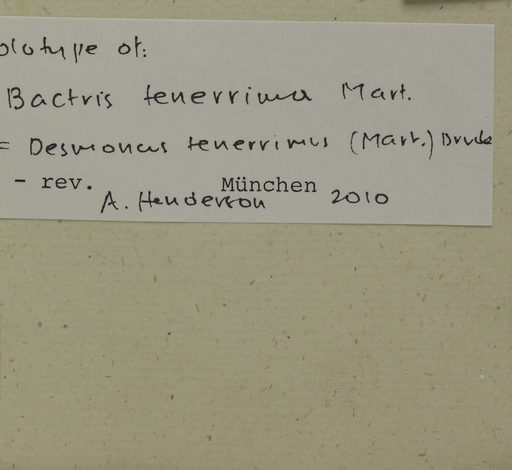 olotype of:
Bactris tenerrima Mart.
= Desmoncus tenerrimus (Mart.) Drude
- rev. München
A. Henderson 2010